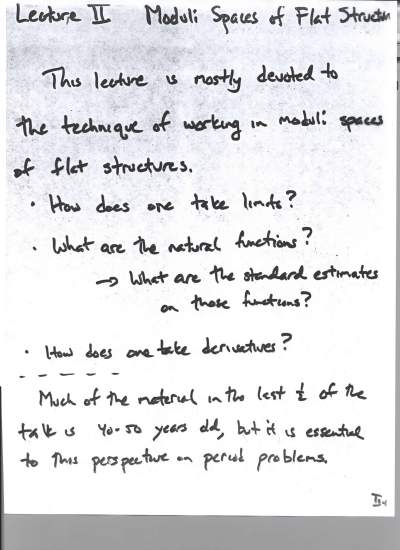 Lecture II Moduli Spaces of Flat Structures
This lecture is mostly devoted to
the technique of working in moduli spaces
of flat structures.
· How does one take limits?
· What are the natural functions?
→ What are the standard estimates
on those functions?
· How does one take derivatives?
Much of the material in the last ½ of the
talk is 40-50 years old, but it is essential
to this perspective on period problems.
II-1